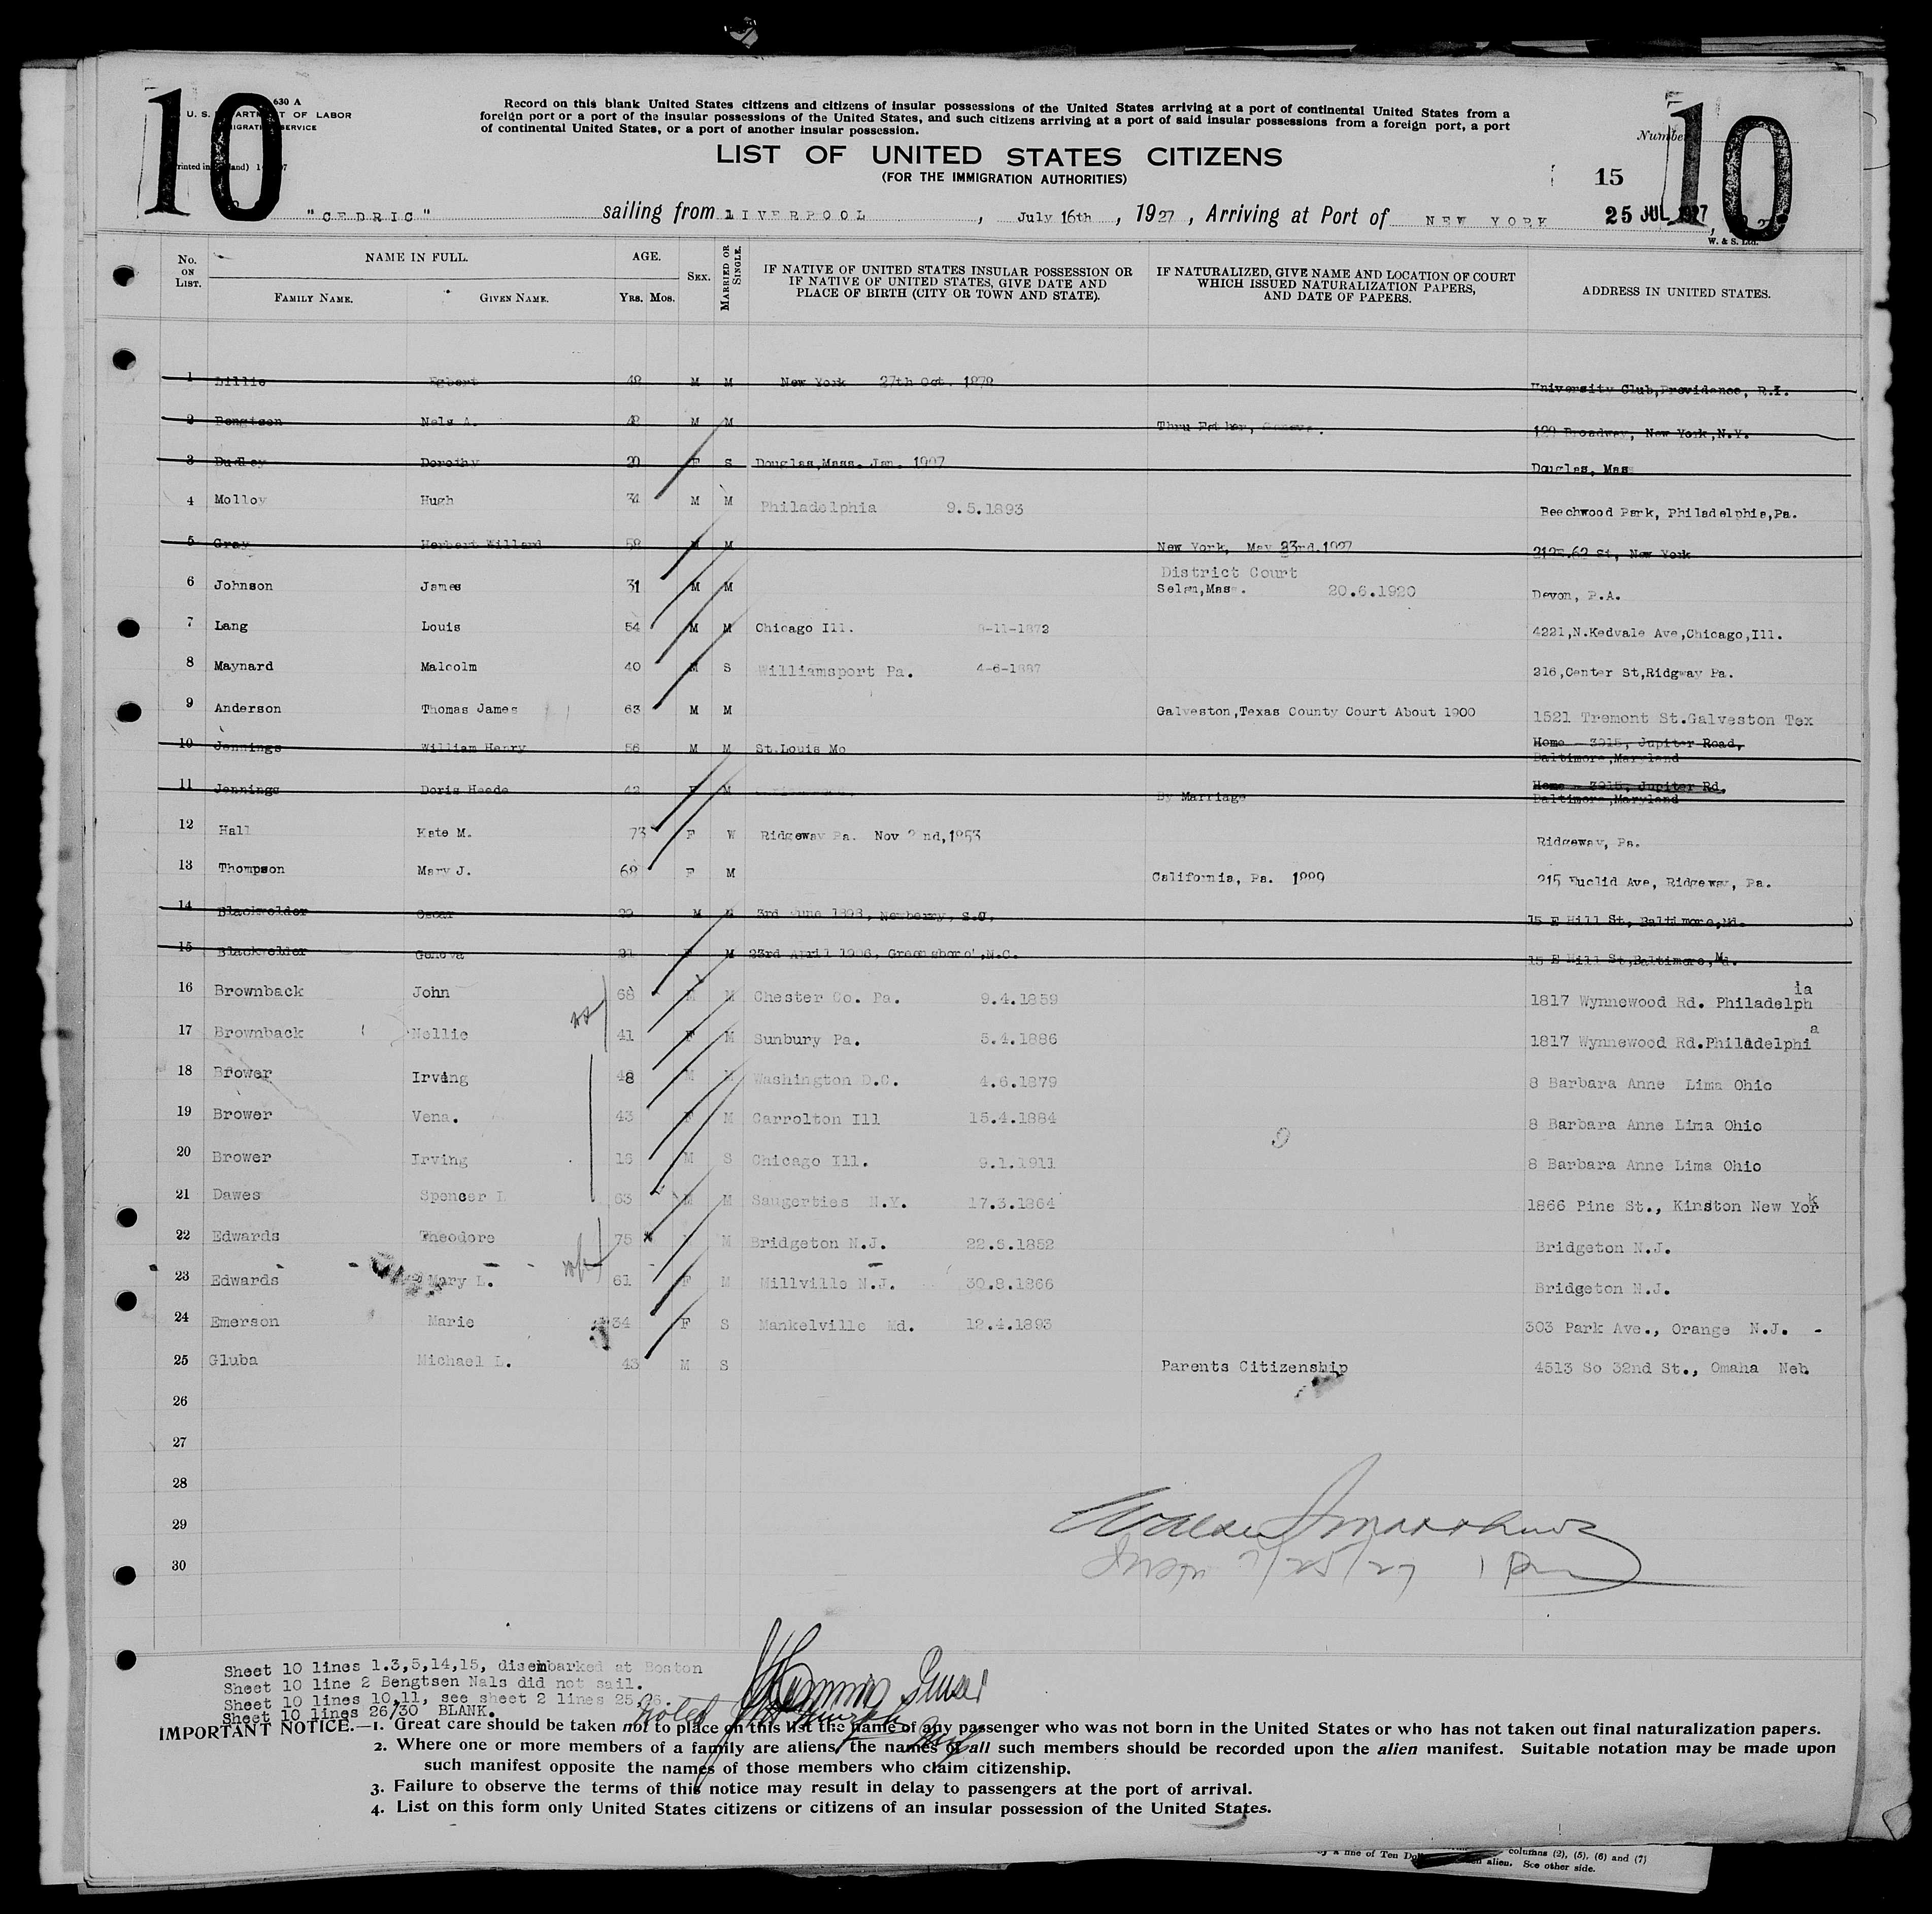 10
630 A
U. S. DEPARTMENT OF LABOR
IMMIGRATION SERVICE
Record on this blank United States citizens and citizens of insular possessions of the United States arriving at a port of continental United States from a
foreign port or a port of the insular possessions of the United States, and such citizens arriving at a port of said insular possessions from a foreign port, a port
of continental United States, or a port of another insular possession.
LIST OF UNITED STATES CITIZENS
(FOR THE IMMIGRATION AUTHORITIES)
Number
15
10
"CEDRIC" sailing from LIVERPOOL, July 16th, 1927, Arriving at Port of NEW YORK 25 JUL 1927
W. & S. Ltd.
No. ON LIST. NAME IN FULL. FAMILY NAME. GIVEN NAME. AGE. YRS. MOS. SEX. MARRIED OR SINGLE. IF NATIVE OF UNITED STATES INSULAR POSSESSION OR IF NATIVE OF UNITED STATES, GIVE DATE AND PLACE OF BIRTH (CITY OR TOWN AND STATE). IF NATURALIZED, GIVE NAME AND LOCATION OF COURT WHICH ISSUED NATURALIZATION PAPERS, AND DATE OF PAPERS. ADDRESS IN UNITED STATES.
1 Lillie Egbert 48 M M New York 27th Oct. 1878 University Club, Providence, R.I.
2 Bengtsen Nels A. 48 M M Thru Father, 120 Broadway, New York, N.Y.
3 Dudley Dorothy 20 F S Douglas, Mass. Jan. 1907 Douglas, Mas
4 Molloy Hugh 34 M M Philadelphia 9.5.1893 Beechwood Park, Philadelphia, Pa.
5 Gray Herbert Willard 58 M M New York, May 23rd.1927 212E.62 St, New York
6 Johnson James 31 M M District Court Selem, Mass. 20.6.1920 Devon, P.A.
7 Lang Louis 54 M M Chicago Ill. 8-11-1872 4221, N.Kedvale Ave, Chicago, Ill.
8 Maynard Malcolm 40 M S Williamsport Pa. 4-6-1887 216, Center St, Ridgway Pa.
9 Anderson Thomas James 63 M M Galveston, Texas County Court About 1900 1521 Tremont St.Galveston Tex
10 Jennings William Henry 56 M M St.Louis Mo Home - 3915, Jupiter Road, Baltimore, Maryland
11 Jennings Doris Heede 42 F M By Marriage Home - 3915, Jupiter Rd. Baltimore, Maryland
12 Hall Kate M. 73 F W Ridgeway Pa. Nov 2nd, 1853 Ridgeway, Pa.
13 Thompson Mary J. 68 F M California, Pa. 1889 215 Euclid Ave, Ridgeway, Pa.
14 Blackwelder Oscar 29 M M 3rd June 1898, Newberry, S.C. 15 E Hill St, Baltimore, Md.
15 Blackwelder Geneva 21 F M 23rd April 1906, Greensboro', N.C. 15 E Hill St, Baltimore, Md.
16 Brownback John 68 M M Chester Co. Pa. 9.4.1859 1817 Wynnewood Rd. Philadelphia
17 Brownback Nellie 41 F M Sunbury Pa. 5.4.1886 1817 Wynnewood Rd.Philadelphia
18 Brower Irving 48 M M Washington D.C. 4.6.1879 8 Barbara Anne Lima Ohio
19 Brower Vena. 43 F M Carrolton Ill 15.4.1884 8 Barbara Anne Lima Ohio
20 Brower Irving 16 M S Chicago Ill. 9.1.1911 8 Barbara Anne Lima Ohio
21 Dawes Spencer L 63 M M Saugerties N.Y. 17.3.1864 1866 Pine St., Kinston New York
22 Edwards Theodore 75 M Bridgeton N.J. 22.6.1852 Bridgeton N.J.
23 Edwards Mary L. 61 F M Millville N.J. 30.8.1866 Bridgeton N.J.
24 Emerson Marie 34 F S Mankelville Md. 12.4.1893 303 Park Ave., Orange N.J. -
25 Gluba Michael L. 43 M S Parents Citizenship 4513 So 32nd St., Omaha Neb.
26
27
28
29
30
7/25/27
Sheet 10 lines 1.3,5,14,15, disembarked at Boston
Sheet 10 line 2 Bengtsen Nals did not sail.
Sheet 10 lines 10,11, see sheet 2 lines 25,26.
Sheet 10 lines 26/30 BLANK.
Noted
IMPORTANT NOTICE.—1. Great care should be taken not to place on this list the name of any passenger who was not born in the United States or who has not taken out final naturalization papers.
2. Where one or more members of a family are aliens, the names of all such members should be recorded upon the alien manifest. Suitable notation may be made upon
such manifest opposite the names of those members who claim citizenship.
3. Failure to observe the terms of this notice may result in delay to passengers at the port of arrival.
4. List on this form only United States citizens or citizens of an insular possession of the United States.
columns (2), (5), (6) and (7)
alien. See other side.